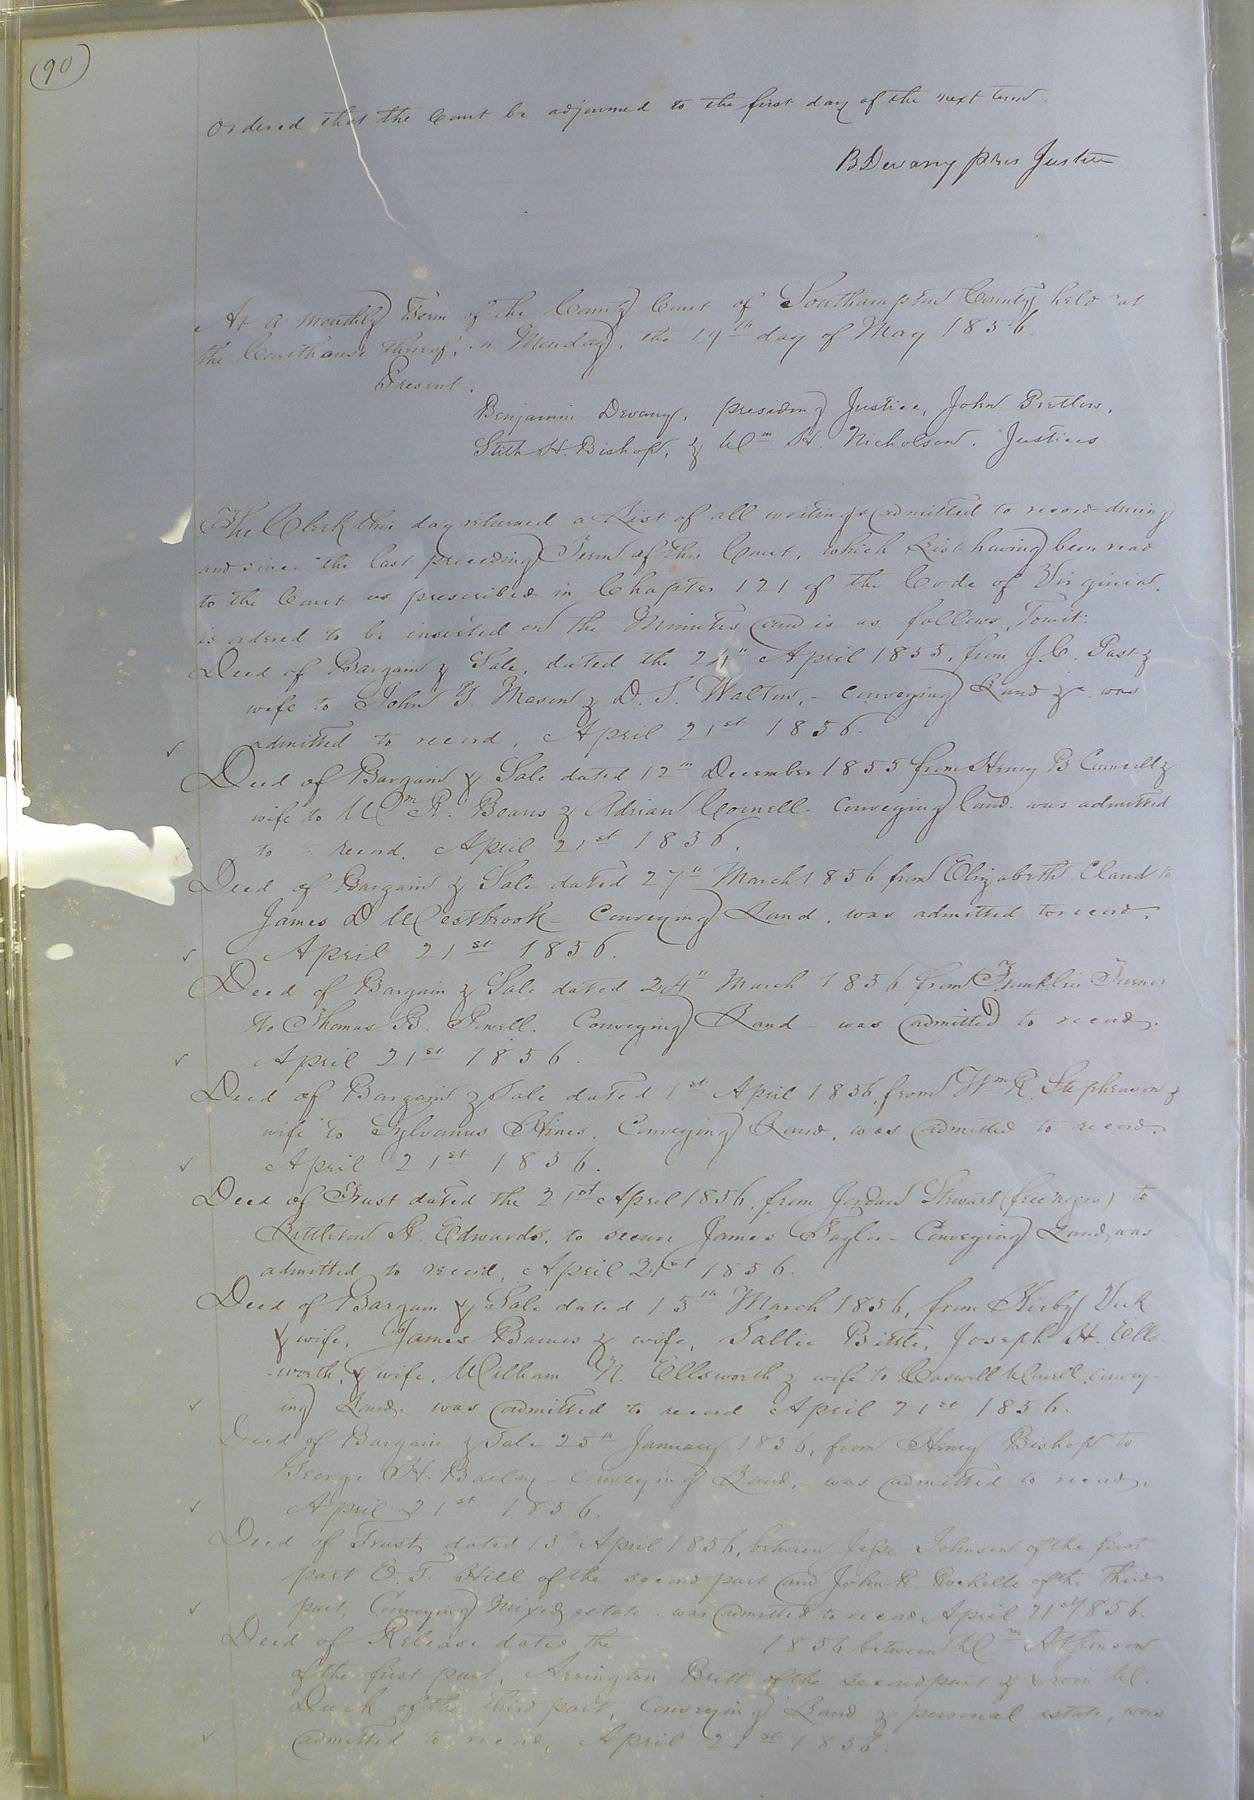 (90)
Ordered that the Court be adjourned to the first day of the next term.
B Devany pres Justice
At a monthly Term of the County Court of Southampton County, held at
the Courthouse thereof, on Monday, the 19th day of May 1856.
Present.
Benjamin Devany, presiding Justice, John Pretlow,
Stith H. Bishop, & Wm H. Nicholson. Justices
The Clerk this day returned a List of all writings admitted to record during
and since the last preceding Term of this Court, which List having been read
to the Court as prescribed in Chapter 121 of the Code of Virginia,
is ordered to be inserted on the Minutes and is as follows, Towit:
Deed of Bargain & Sale, dated the 24" April 1855, from J. C. &
wife to John Y. Mason & D. S. Walton, - conveying Land &c. was
admitted to record, April 21st 1856.
Deed of Bargain & Sale dated 12th December 1855 from Henry B &
wife to Wm R. Beaus & Adrian - conveying land. was admitted
to record. April 21st 1856.
Deed of Bargain & Sale dated 27" March 1856 from Elizabeth Claud to
James D Westbrook - Conveying Land, was admitted to record.
April 21st 1856.
Deed of Bargain & Sale dated 24" March 1856 from Franklin Turner
to Thomas B. Powell. Conveying Land - was admitted to record.
April 21st 1856.
Deed of Bargain & Sale dated 1st April 1856, from Wm R. Stephenson &
wife to Sylvanus Hines, Conveying Land, was admitted to record.
April 21st 1856.
Deed of Trust dated the 21st April 1856, from Jordan Stewart (free negro) to
Littleton R. Edwards, to secure James Taylor - Conveying Land, was
admitted to record, April 21st 1856.
Deed of Bargain & Sale dated 15th March 1856, from Kirby Vick
& wife, James Barnes & wife, Sallie Bittle, Joseph H. Ells-
-worth, & wife, William N. Ellsworth & wife to Caswell Worrell, convey-
ing Land. was admitted to record April 21st 1856.
Deed of Bargain & Sale 25th January 1856, from Henry Bishop to
George H. Bailey - conveying Land, was admitted to record,
April 21st 1856.
Deed of Trust, dated 15" April 1856, between Jesse Johnson of the first
part O. T. Hill of the second part and John R. Rochelle of the third
part, Conveying Mixed estate - was admitted to record April 21st 1856.
Deed of Release dated the 1856 between Wm Atkinson
of the first part, Arrington Britt of the second part & W.
Duck of the third part, conveying Land & personal estate, was
admitted to record, April 21st 1856.